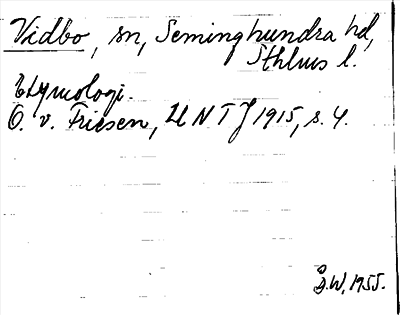 Vidbo, sn, Seminghundra hd,
Sthlms l.
Etymologi.
O. v. Friesen, UNTJ 1915, s. 4.
D.W. 1955.